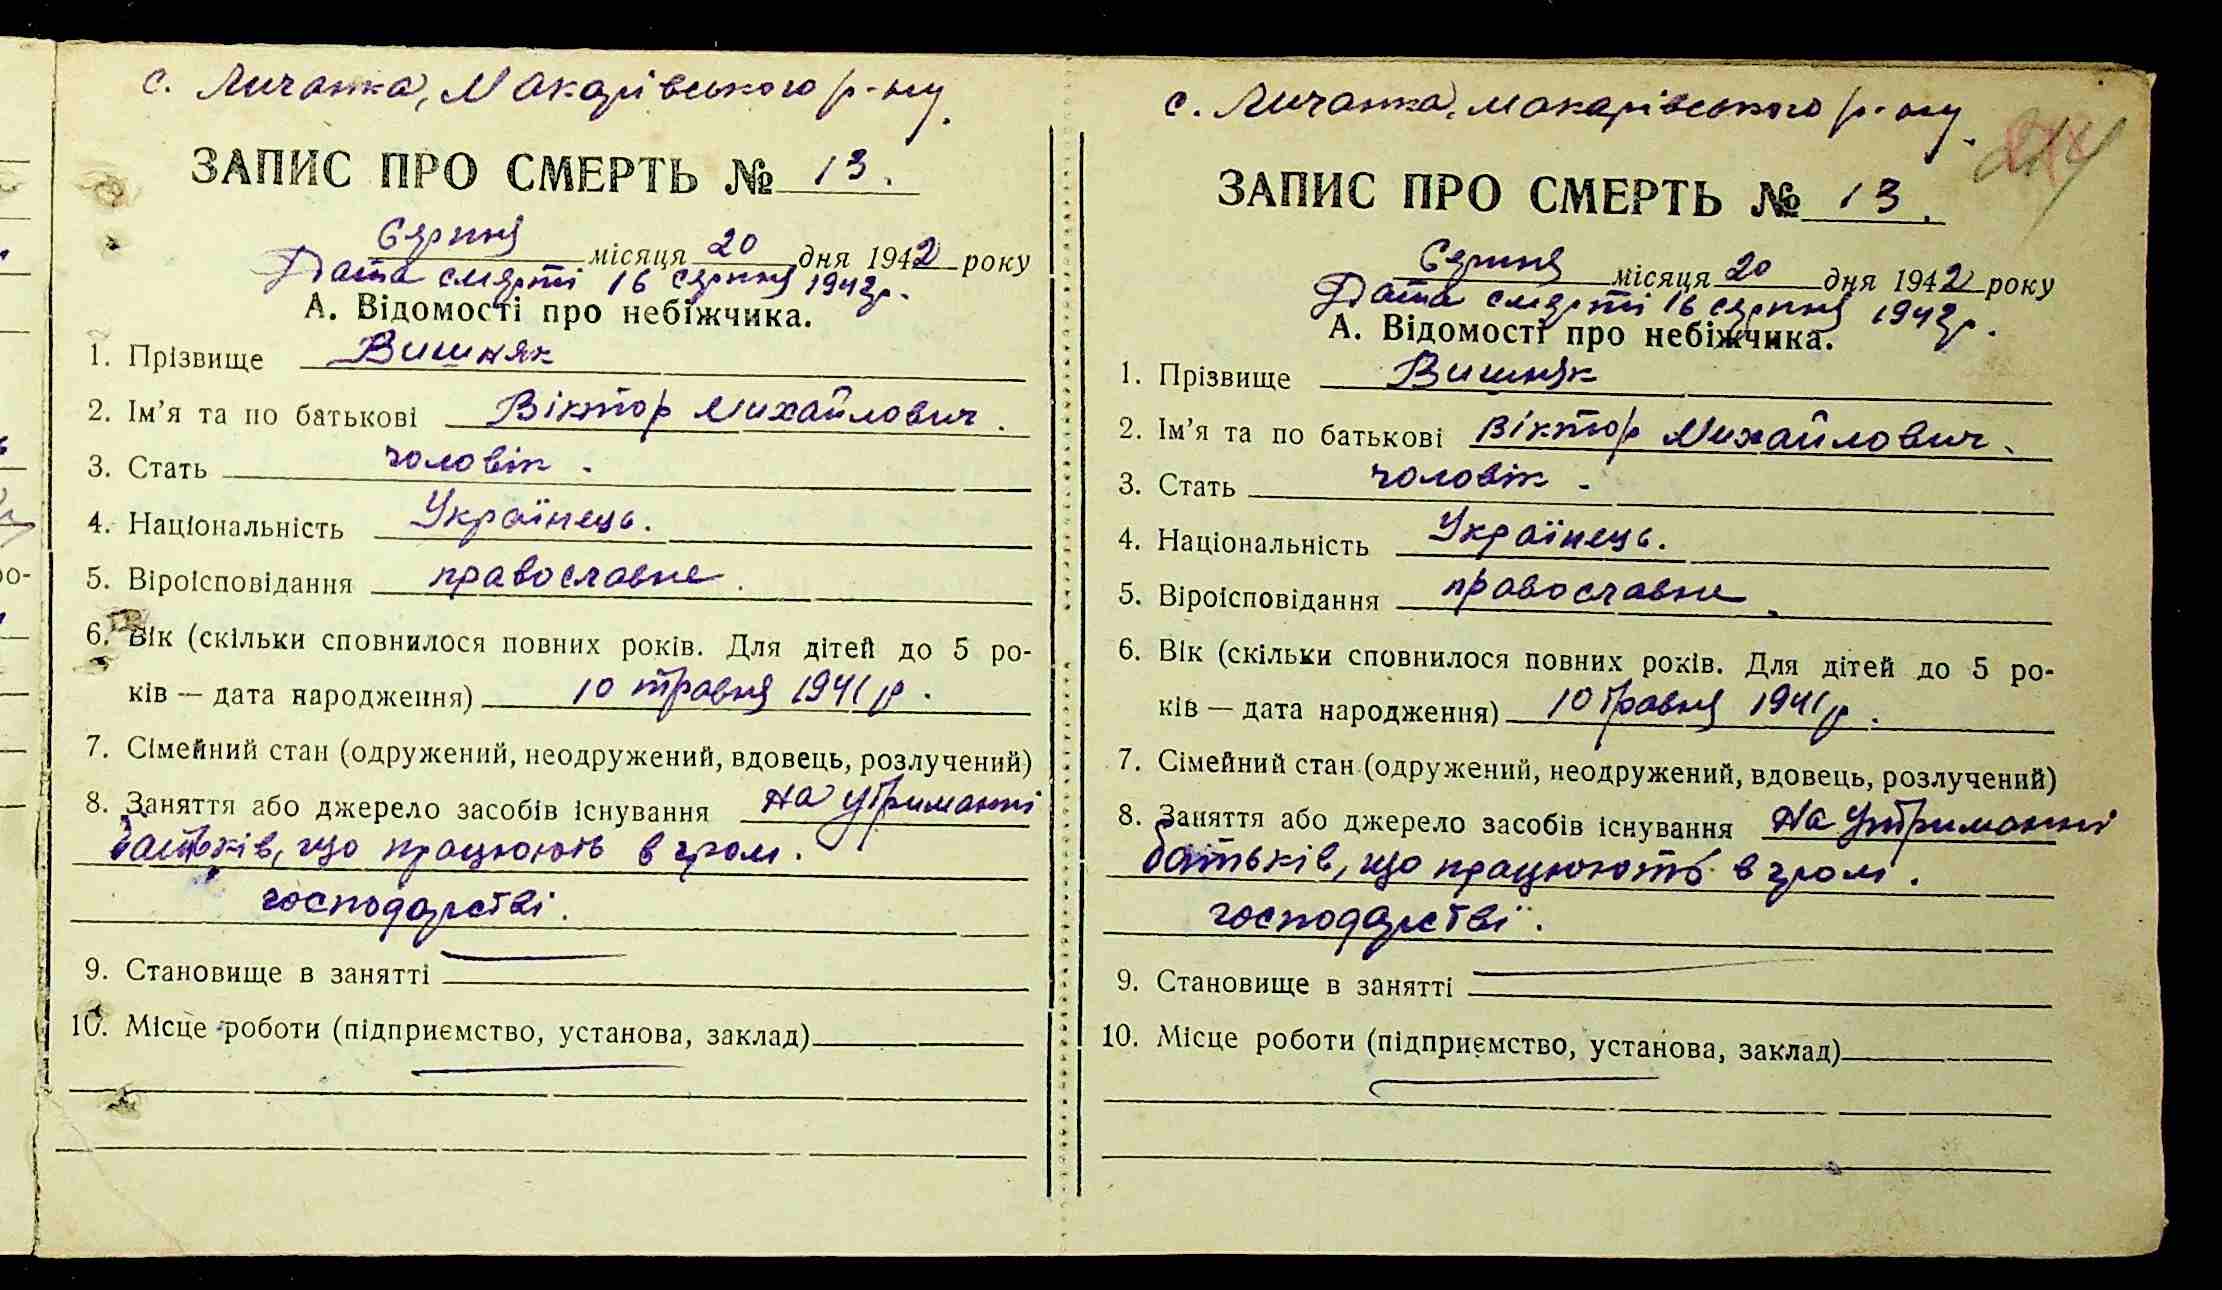 с. Личанка, Макарівського р-ну.
ЗАПИС ПРО СМЕРТЬ № 13.
Серпня місяця 20 дня 1942 року
Дата смерти 16 серпня 1942 р.
А. Відомості про небіжчика.
1. Прізвище Вишняк
2. Ім'я та по батькові Віктор Михайлович.
3. Стать чоловік.
4. Національність Українець.
5. Віроісповідання православне.
6. Вік (скільки сповнилося повних років. Для дітей до 5 ро-
ків — дата народження) 10 травня 1941 р.
7. Сімейний стан (одружений, неодружений, вдовець, розлучений)
8. Заняття або джерело засобів існування на утриманні
батьків, що працюють в гром.
господарстві.
9. Становище в занятті
10. Місце роботи (підприємство, установа, заклад)
с. Личанка, Макарівського р-ну.
ЗАПИС ПРО СМЕРТЬ № 13.
Серпня місяця 20 дня 1942 року
Дата смерті 16 серпня 1942 р.
А. Відомості про небіжчика.
1. Прізвище Вишняк
2. Ім'я та по батькові Віктор Михайлович.
3. Стать чоловік.
4. Національність Українець.
5. Віроісповідання православне.
6. Вік (скільки сповнилося повних років. Для дітей до 5 ро-
ків — дата народження) 10 травня 1941 р.
7. Сімейний стан (одружений, неодружений, вдовець, розлучений)
8. Заняття або джерело засобів існування На утриманні
батьків, що працюють в гром.
господарстві.
9. Становище в занятті
10. Місце роботи (підприємство, установа, заклад)